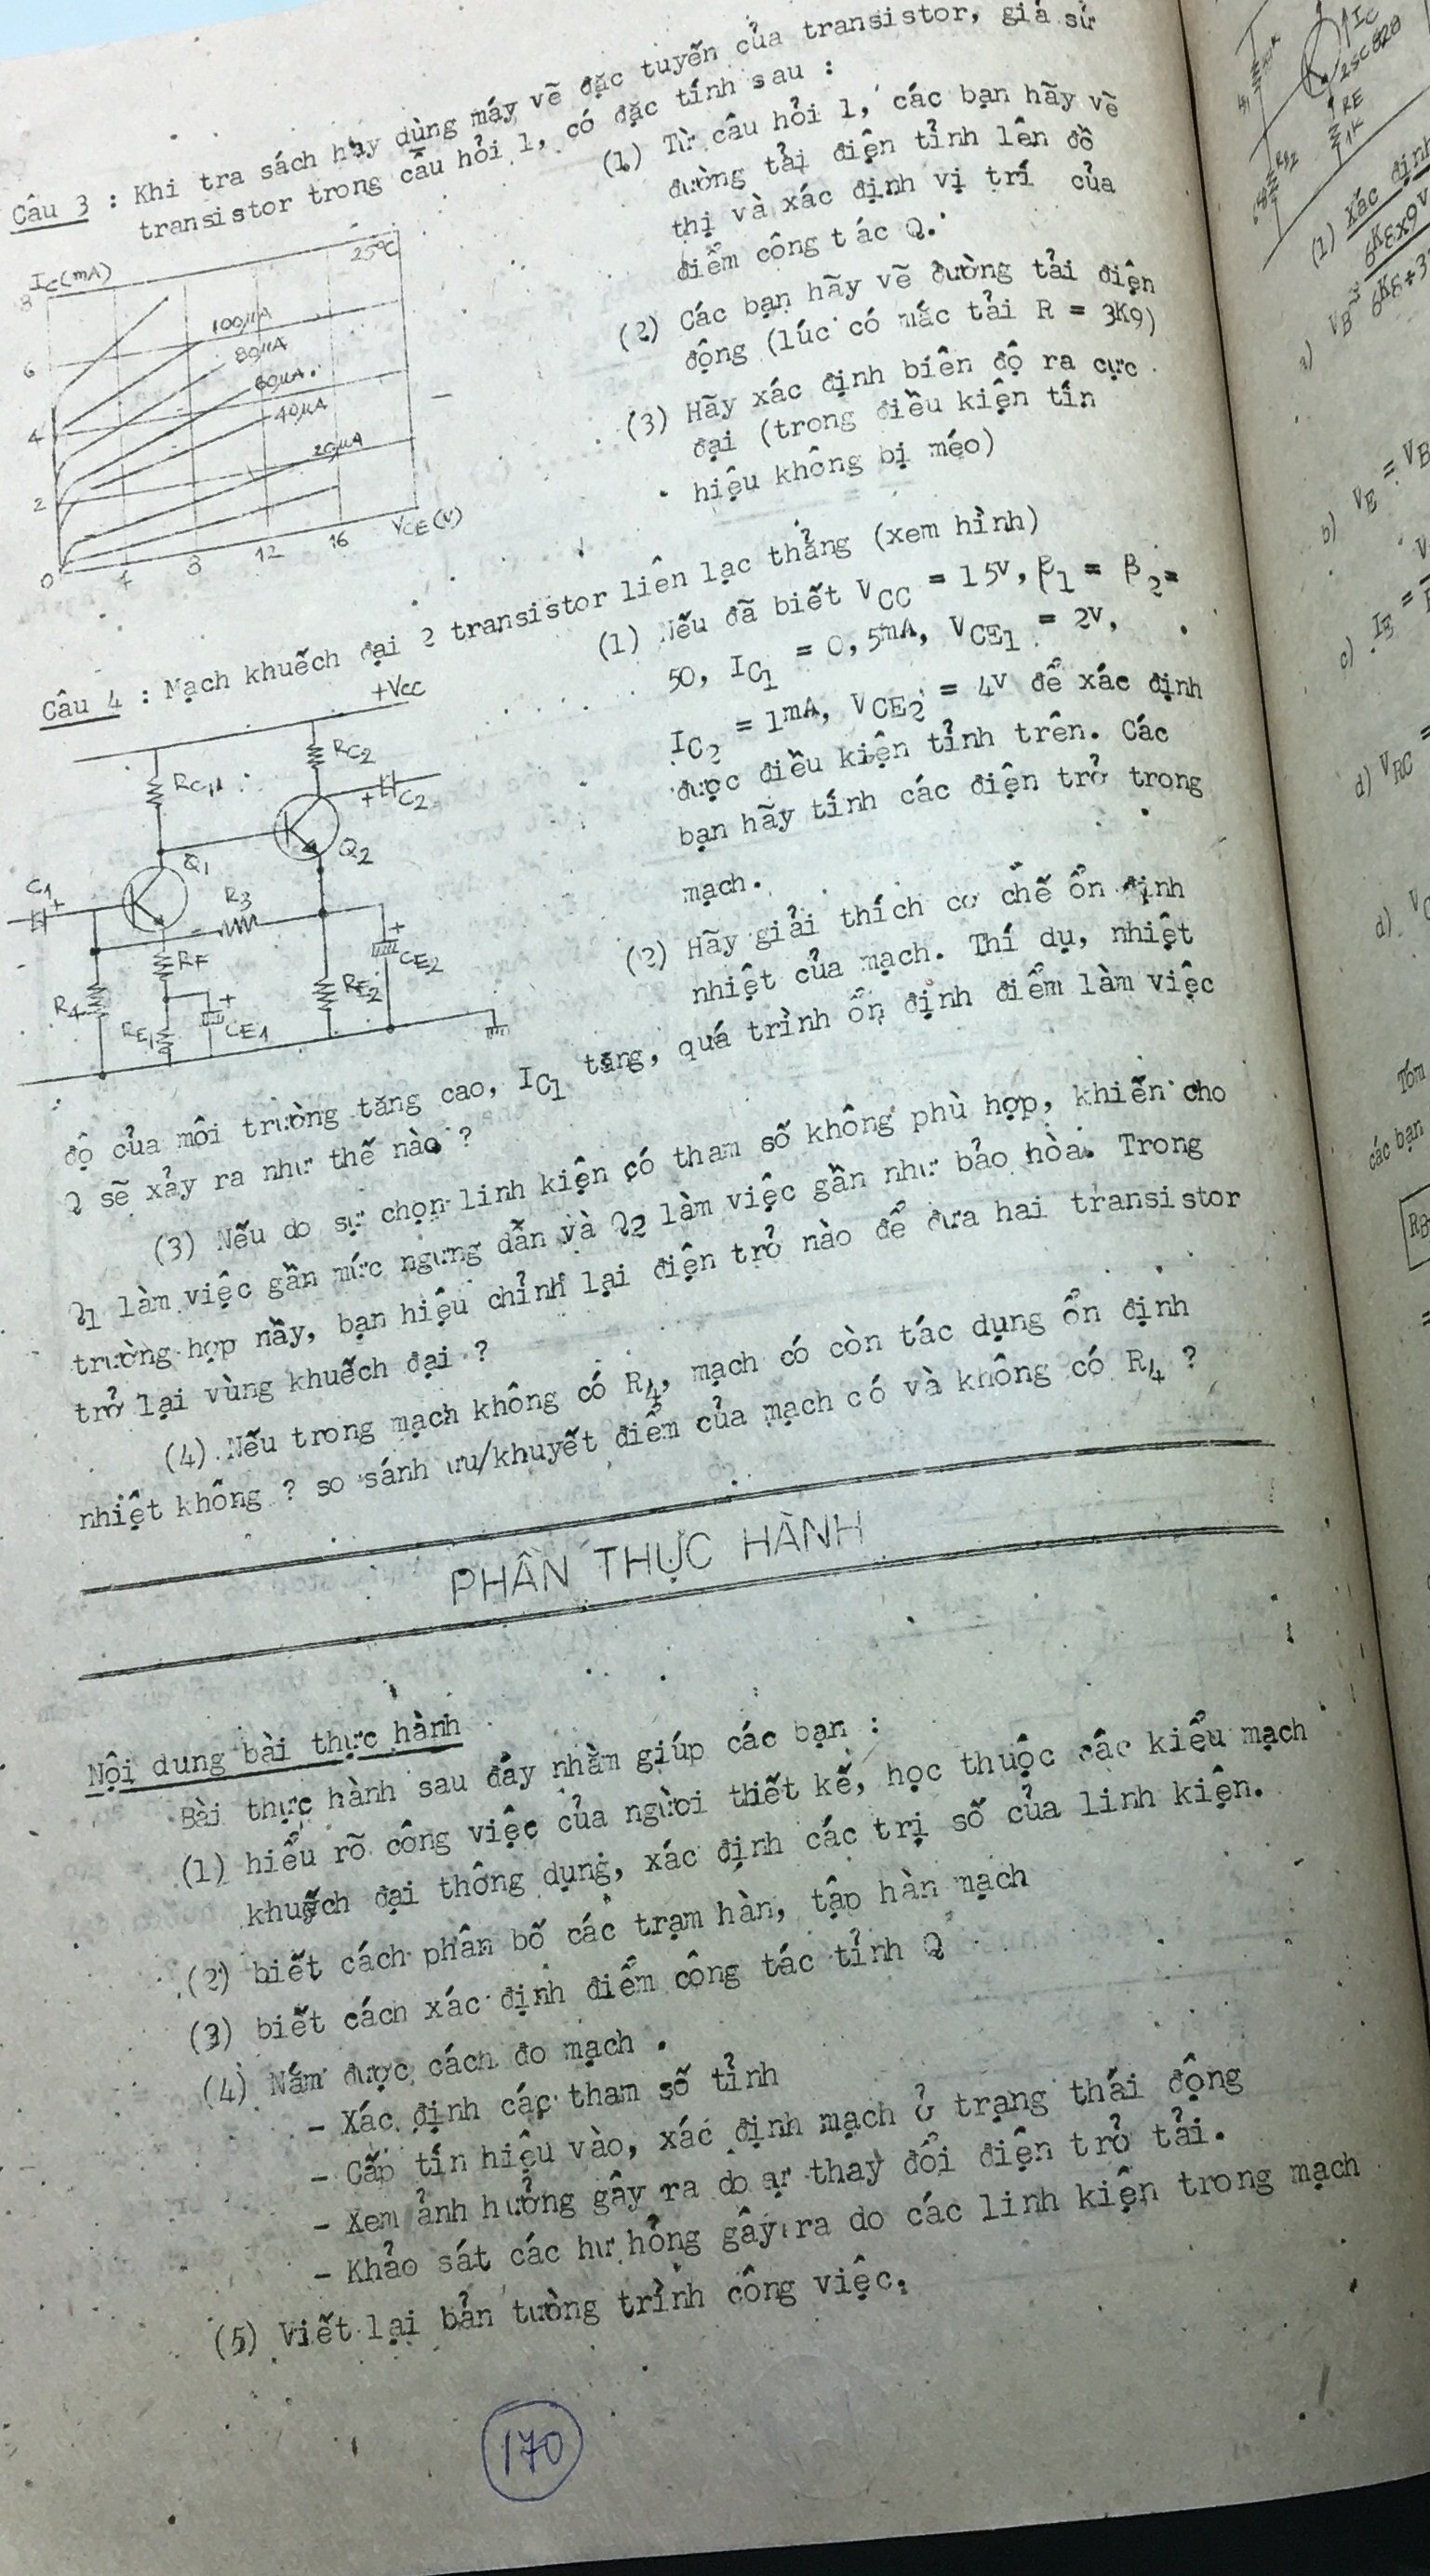 Câu 3 : Khi tra sách hay dùng máy vẽ đặc tuyến của transistor, giả sử
transistor trong câu hỏi 1, có đặc tính sau :
(1) Từ câu hỏi 1, các bạn hãy vẽ
đường tải điện tỉnh lên đồ
thị và xác định vị trí của
điểm công tác Q.
(2) Các bạn hãy vẽ đường tải điện
động (lúc có mắc tải R = 3K9)
(3) Hãy xác định biên độ ra cực
đại (trong điều kiện tín
hiệu không bị méo)
IC(mA)
25°C
8
6
4
2
0
100µA
80µA
60µA
40µA
20µA
4
8
12
16
VCE(V)
Câu 4 : Mạch khuếch đại 2 transistor liên lạc thẳng (xem hình)
(1) Nếu đã biết VCC = 15V, β1 = β2=
50, IC1 = 0,5mA, VCE1 = 2V,
IC2 = 1mA, VCE2 = 4V để xác định
được điều kiện tỉnh trên. Các
bạn hãy tính các điện trở trong
mạch.
+VCC
RC1
RC2
+
C2
Q1
Q2
C1
+
R3
RF
+
CE2
R4
RE1
+
CE1
RE2
(2) Hãy giải thích cơ chế ổn định
nhiệt của mạch. Thí dụ, nhiệt
độ của môi trường tăng cao, IC1 tăng, quá trình ổn định điểm làm việc
Q sẽ xảy ra như thế nào ?
(3) Nếu do sự chọn linh kiện có tham số không phù hợp, khiến cho
Q1 làm việc gần mức ngưng dẫn và Q2 làm việc gần như bảo hòa. Trong
trường hợp nầy, bạn hiệu chỉnh lại điện trở nào để đưa hai transistor
trở lại vùng khuếch đại ?
(4) Nếu trong mạch không có R4, mạch có còn tác dụng ổn định
nhiệt không ? so sánh ưu/khuyết điểm của mạch có và không có R4 ?
PHẦN THỰC HÀNH
Nội dung bài thực hành
Bài thực hành sau đây nhằm giúp các bạn :
(1) hiểu rõ công việc của người thiết kế, học thuộc các kiểu mạch
khuếch đại thông dụng, xác định các trị số của linh kiện.
(2) biết cách phân bố các trạm hàn, tập hàn mạch
(3) biết cách xác định điểm công tác tỉnh Q
(4) Nắm được cách đo mạch .
- Xác định các tham số tỉnh
- Cấp tín hiệu vào, xác định mạch ở trạng thái động
- Xem ảnh hưởng gây ra do sự thay đổi điện trở tải.
- Khảo sát các hư hỏng gây ra do các linh kiện trong mạch
(5) Viết lại bản tường trình công việc.
170
IC
2SC828
RE
1K
RB2
(1) Xác định
6K8x9V
6K8+3
VB
a)
b) VE = VB
c) IE =
d) VRC =
d) VC
Tóm
các bạn
RB